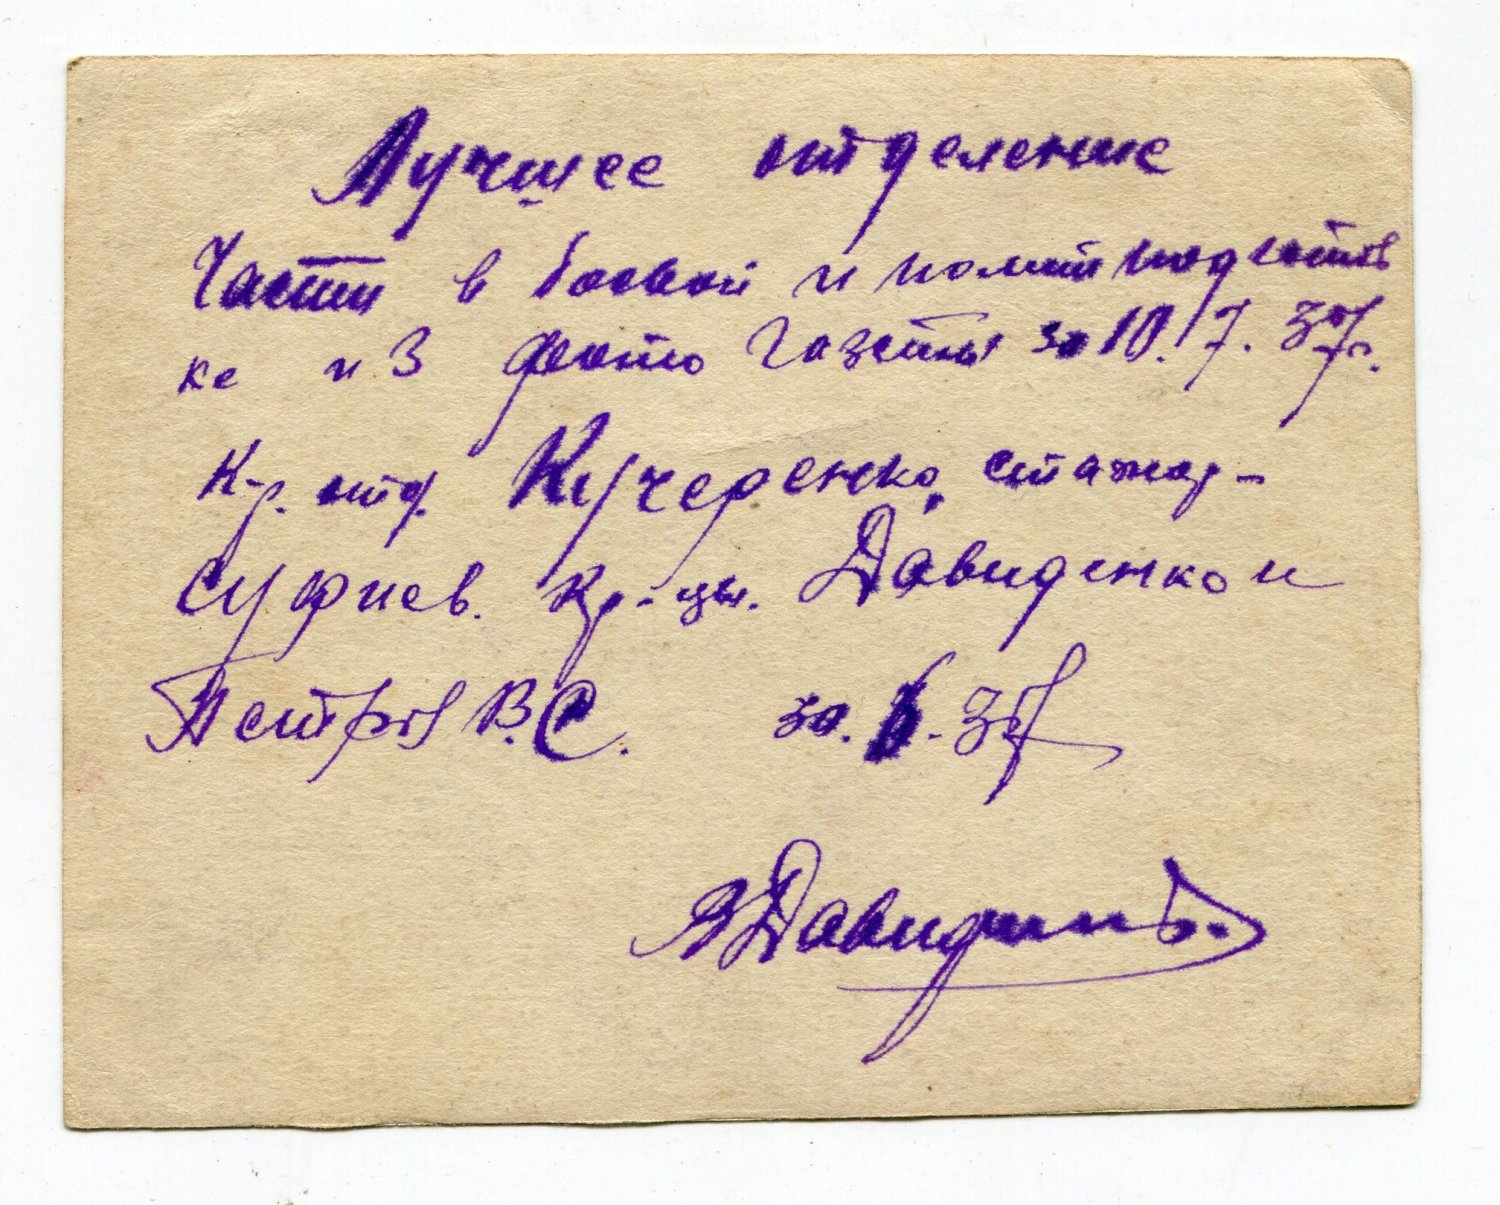 Лучшее отделение
Части в боевой и политподготов
ке из фото газеты за 10.7.37г.
К-р. отд. Кучеренко, стажор-
Суфиев. Кр-цы. Давиденко и
Петров В.С. 30. 6. 37